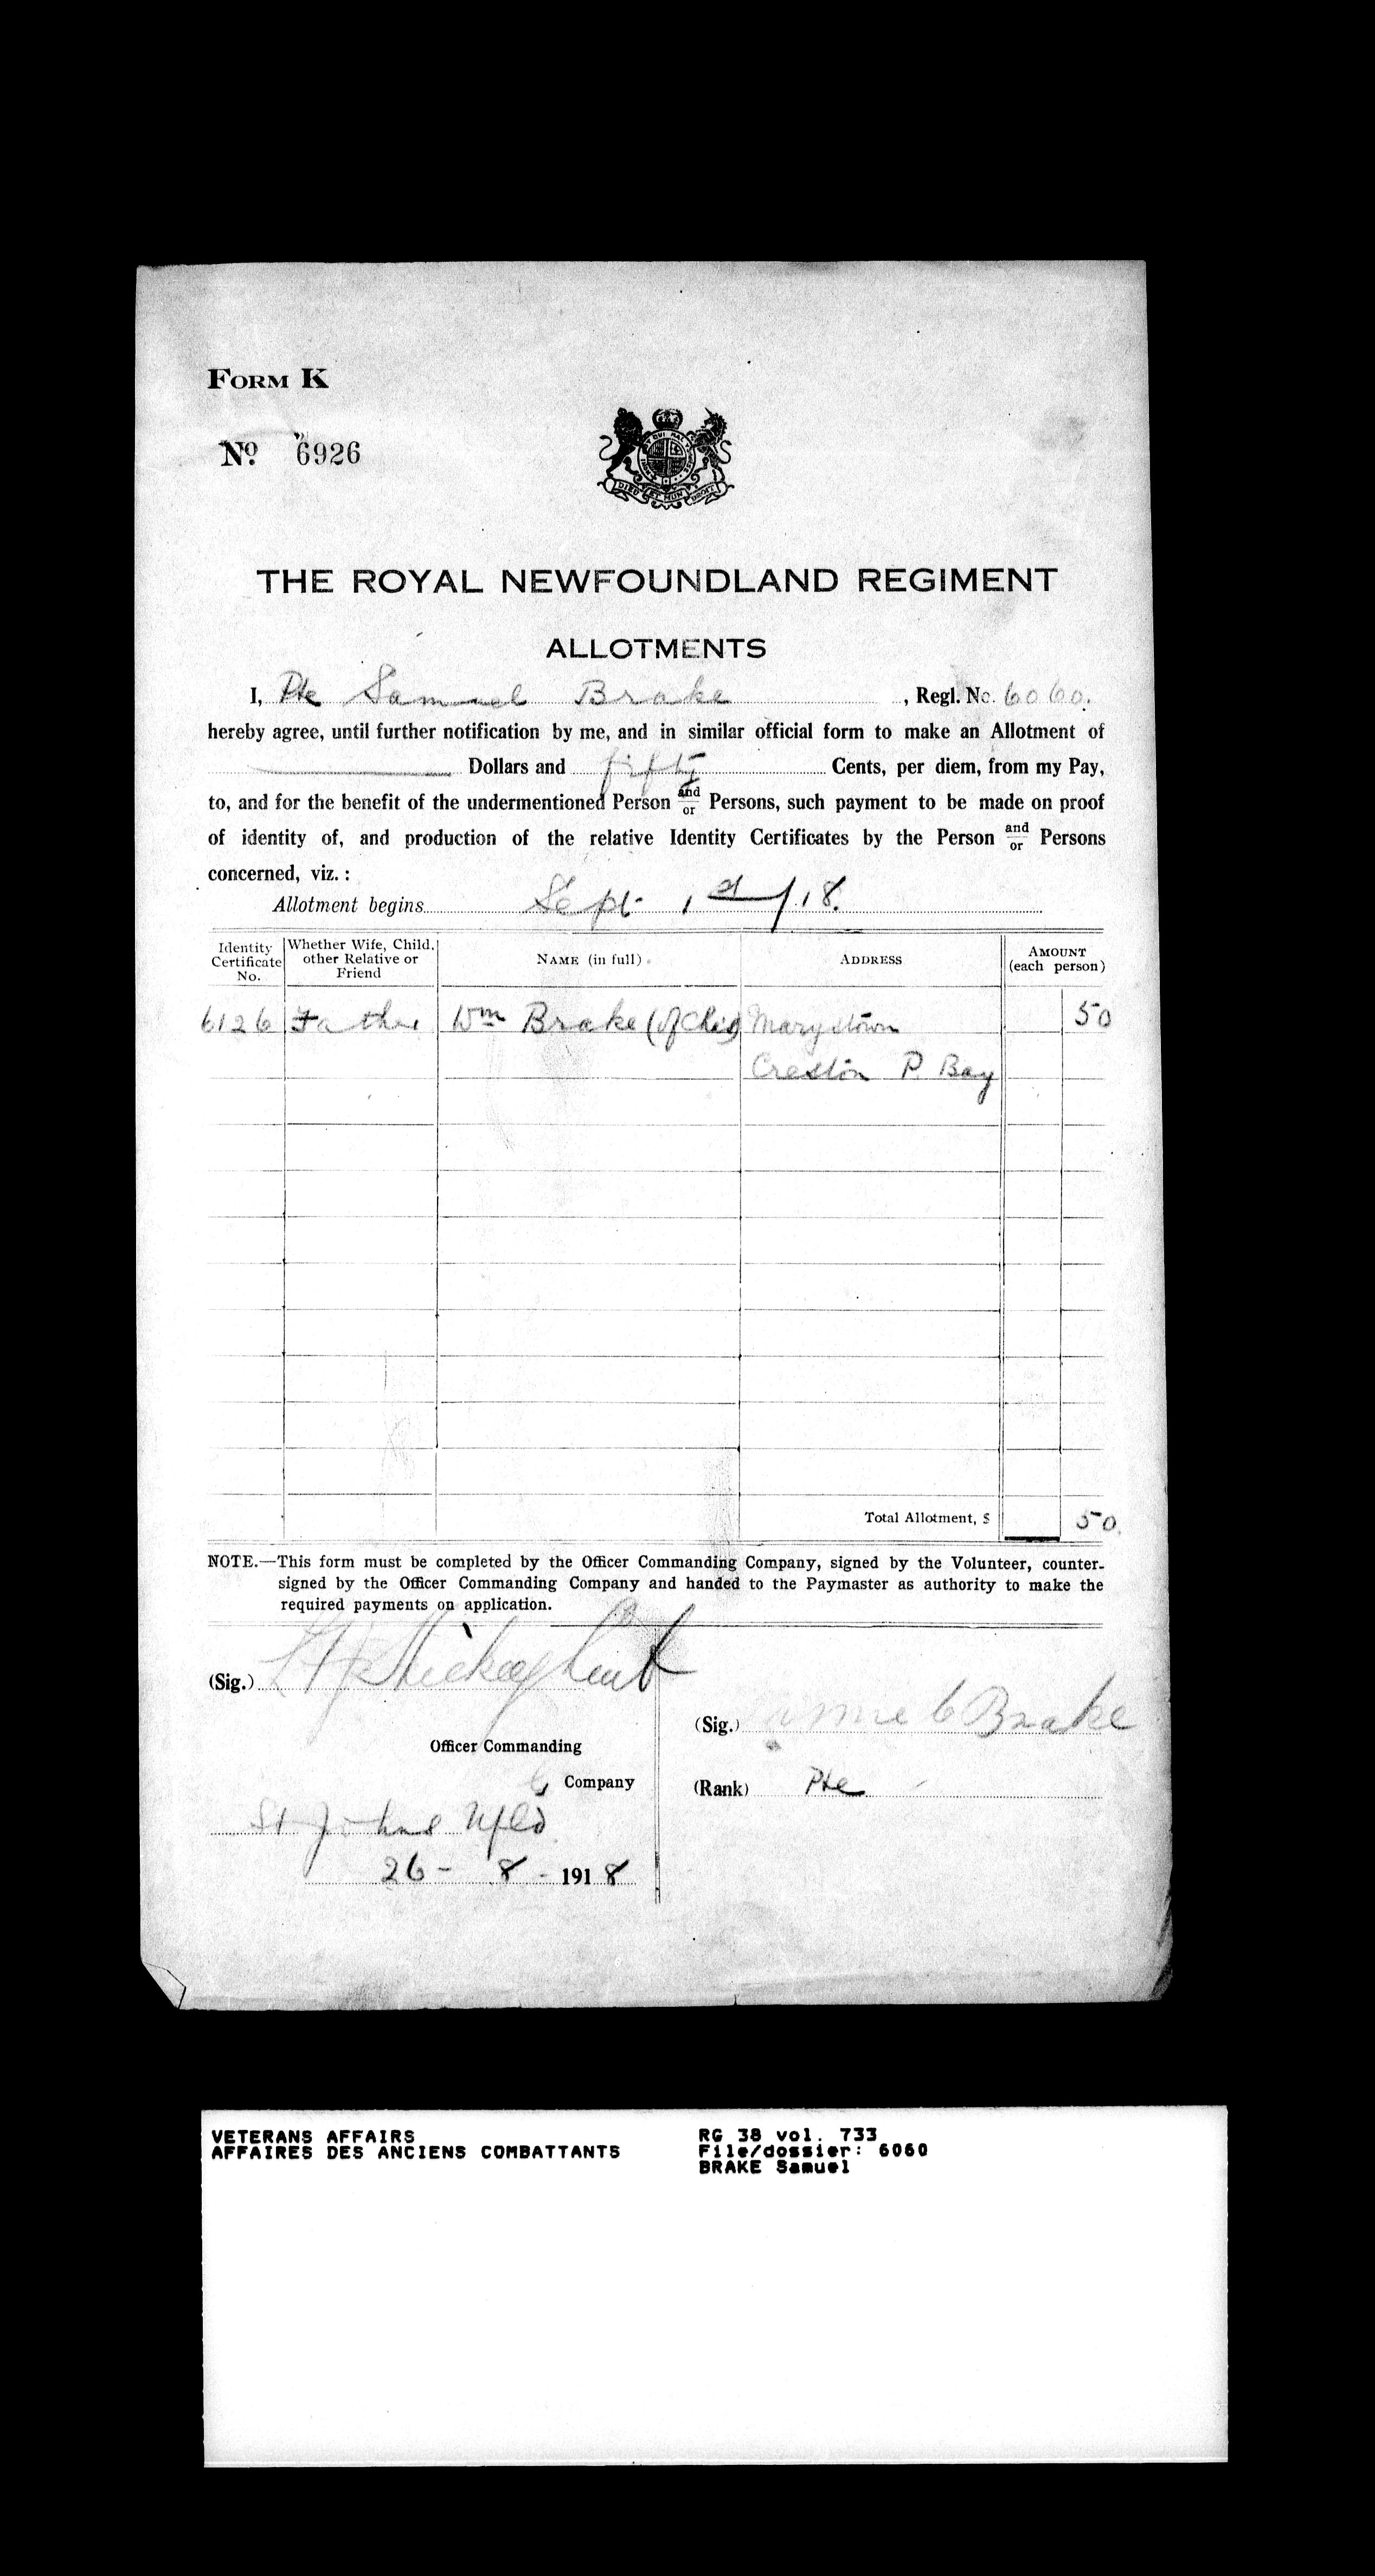 FORM K
No. 6926
THE ROYAL NEWFOUNDLAND REGIMENT
ALLOTMENTS
I, Pte Samuel Brake, Regl. No. 6060.
hereby agree, until further notification by me, and in similar official form to make an Allotment of
Dollars and fifty Cents, per diem, from my Pay,
to, and for the benefit of the undermentioned Person and/or Persons, such payment to be made on proof
of identity of, and production of the relative Identity Certificates by the Person and/or Persons
concerned, viz. :
Allotment begins Sept 1st/18.
Identity Certificate No.
Whether Wife, Child, other Relative or Friend
NAME (in full)
ADDRESS
AMOUNT (each person)
6126 Father Wm Brake (of Marystown 50
Creston P. Bay
Total Allotment, $ 50.
NOTE.—This form must be completed by the Officer Commanding Company, signed by the Volunteer, counter-
signed by the Officer Commanding Company and handed to the Paymaster as authority to make the
required payments on application.
(Sig.)
(Sig.) Brake
Officer Commanding
Company
(Rank) Pte
St Johns Nfld
26 - 8 - 1918
VETERANS AFFAIRS
AFFAIRES DES ANCIENS COMBATTANTS
RG 38 vol. 733
File/dossier: 6060
BRAKE Samuel